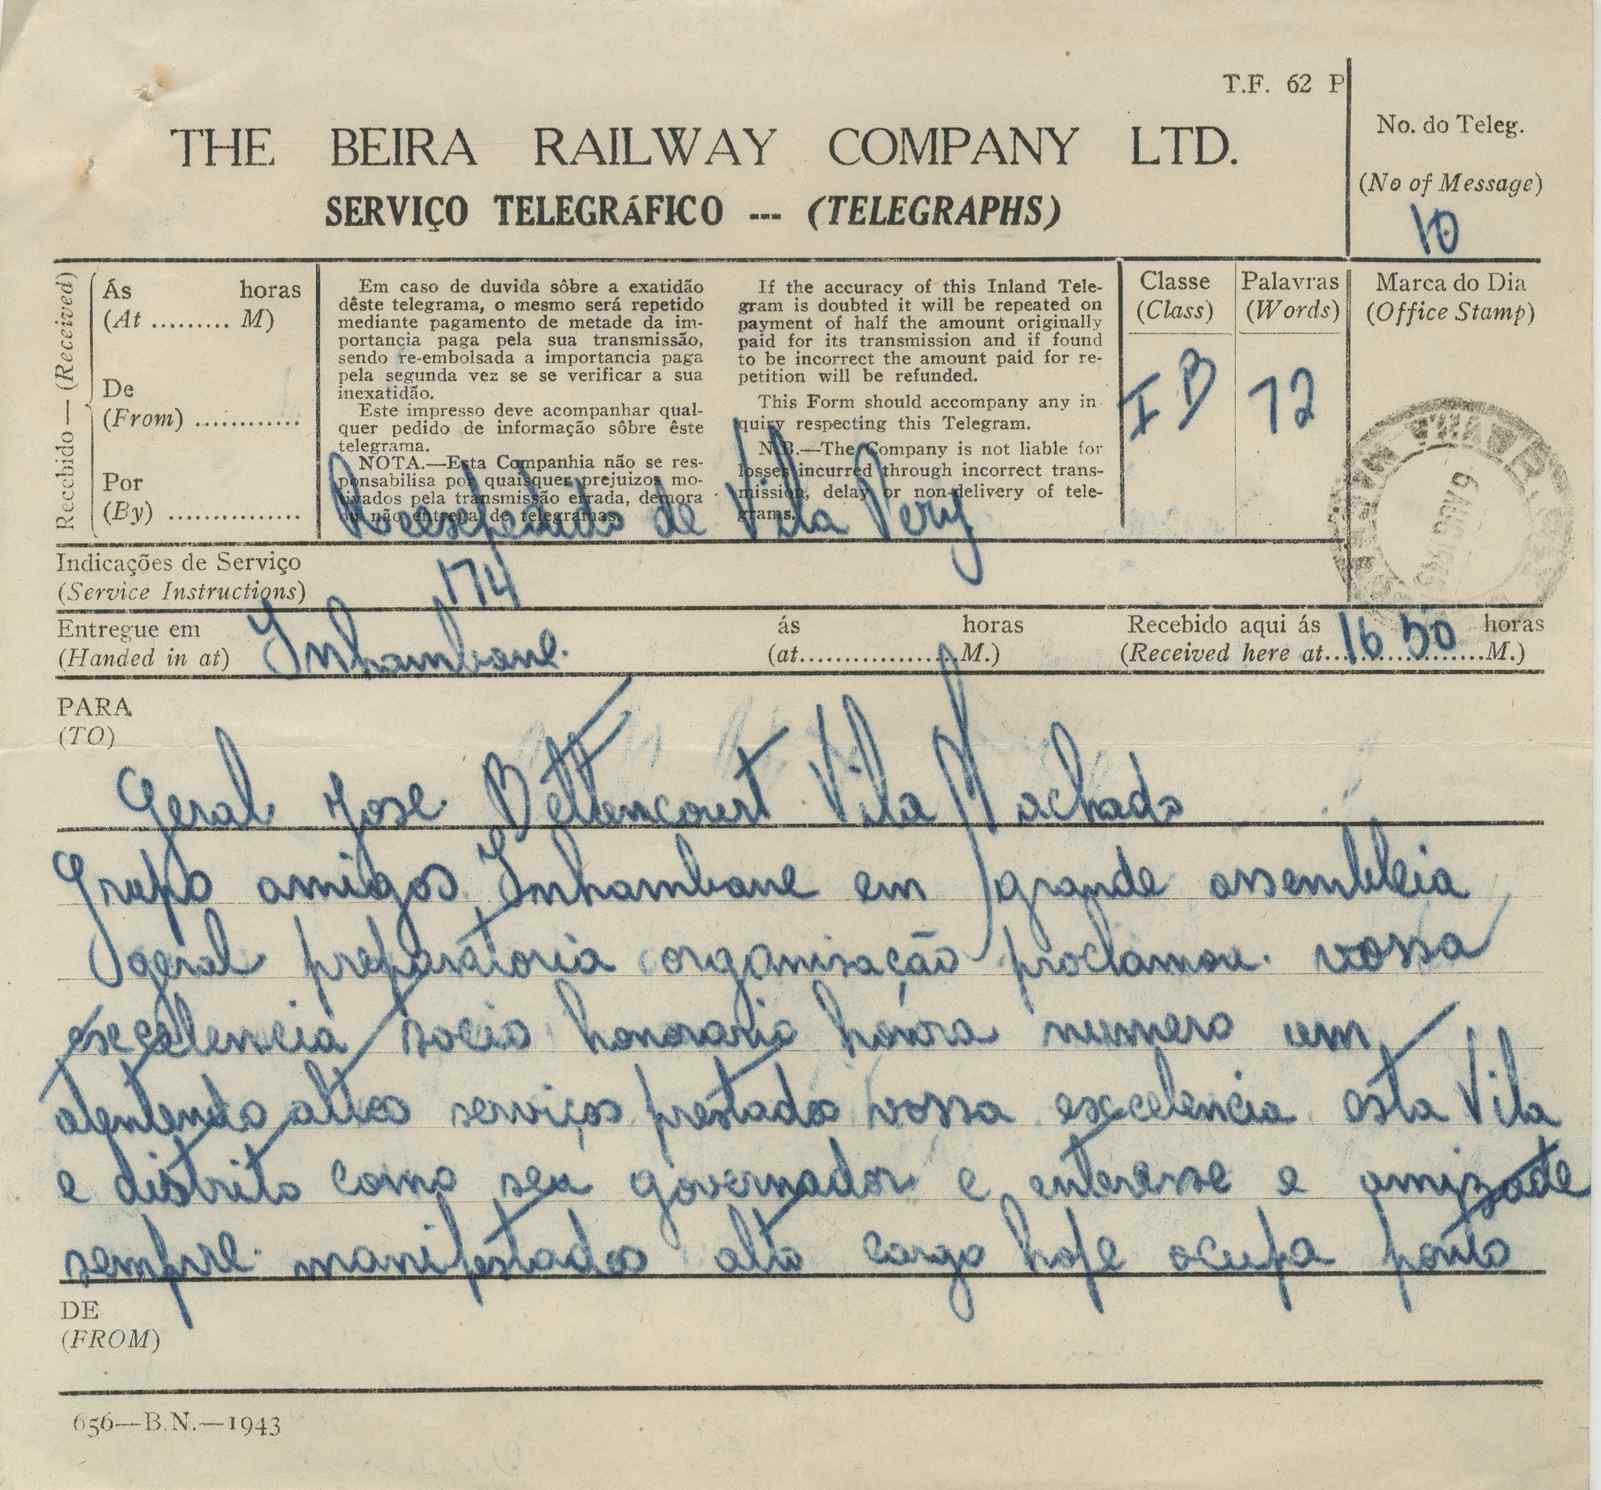 T.F. 62 P
THE BEIRA RAILWAY COMPANY LTD.
SERVIÇO TELEGRÁFICO --- (TELEGRAPHS)
No. do Teleg.
(No of Message)
10
Recebido — (Received)
Ás horas
(At ......... M)
De
(From) ............
Por
(By) ...............
Em caso de duvida sôbre a exatidão
dêste telegrama, o mesmo será repetido
mediante pagamento de metade da im-
portancia paga pela sua transmissão,
sendo re-embolsada a importancia paga
pela segunda vez se se verificar a sua
inexatidão.
Este impresso deve acompanhar qual-
quer pedido de informação sôbre êste
telegrama.
NOTA.—Esta Companhia não se res-
ponsabilisa por quaisquer prejuizos mo-
tivados pela transmissão errada, demora
ou não entrega de telegramas.
If the accuracy of this Inland Tele-
gram is doubted it will be repeated on
payment of half the amount originally
paid for its transmission and if found
to be incorrect the amount paid for re-
petition will be refunded.
This Form should accompany any in
quiry respecting this Telegram.
N.B.—The Company is not liable for
losses incurred through incorrect trans-
mission, delay or non-delivery of tele-
grams.
Classe
(Class)
IB
Palavras
(Words)
72
Marca do Dia
(Office Stamp)
6 AUG
de Vila Pery
Indicações de Serviço
(Service Instructions)
174
Entregue em
(Handed in at)
Inhambane
ás horas
(at..................M.)
Recebido aqui ás 16 50 horas
(Received here at..................M.)
PARA
(TO)
Geral Jose Bettencourt Vila Machado
Grupo amigos Inhambane em grande assembleia
geral preparatoria organisação proclamou vossa
excelencia socio honorario numero um
atentendo altos serviços prestados vossa excelencia esta Vila
e distrito como seu governador e enteresse e amizade
sempre manifestados alto cargo hoje ocupa
DE
(FROM)
656—B.N.—1943